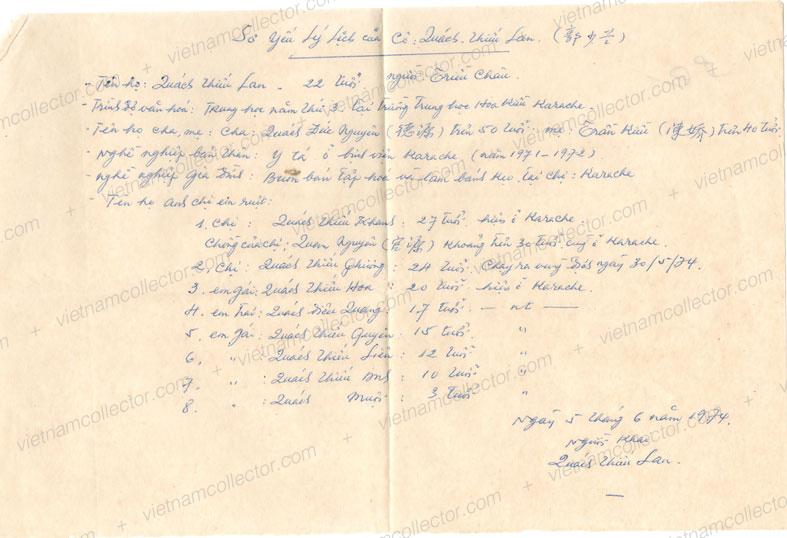 Sơ Yếu Lý Lịch của Cô: Quách Thiếu Lan. (郭少兰)
- Tên họ: Quách Thiếu Lan - 22 tuổi người Triều Châu.
- Trình độ văn hoá: Trung học năm thứ 3. tại trường Trung học Hoa Kiều Karache.
- Tên họ cha, mẹ: Cha: Quách Đức Nguyên (德源) trên 50 tuổi; mẹ: Trần Kiều (陳娇) trên 40 tuổi.
- Nghề nghiệp bản thân: Y tá ở bình viện Karache (năm 1971-1972)
- nghề nghiệp gia đình: Buôn bán tập hoá và làm bánh kẹo tại chợ: Karache
- Tên họ anh chị em ruột:
1. Chị: Quách Thiếu Khanh: 27 tuổi hiện ở Karache.
Chồng của chị: Quan Nguyên khoảng trên 30 tuổi cũng ở Karache.
2. Chị: Quách Thiếu Phương: 24 tuổi Chạy ra vùng ngày 30/5/74.
3. em gái: Quách Thiếu Hoa: 20 tuổi hiện ở Karache.
4. em trai: Quách Diệu Quang: 17 tuổi — nt —
5. em gái: Quách Thiếu Quyên: 15 tuổi "
6. " : Quách Thiếu Liên: 12 tuổi "
7. " : Quách Thiếu Anh: 10 tuổi "
8. " : Quách Muội: 3 tuổi "
Ngày 5 tháng 6 năm 1974.
Người Khai
Quách Thiếu Lan.
vietnamcollector.com